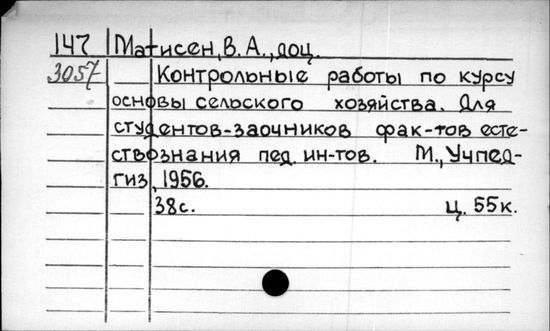 147 Матисен, В. А., доц.
3057 Контрольные работы по курсу
основы сельского хозяйства. Для
студентов-заочников фак-тов есте-
ствознания пед. ин-тов. М., Учпед-
гиз, 1956.
38с. ц. 55к.